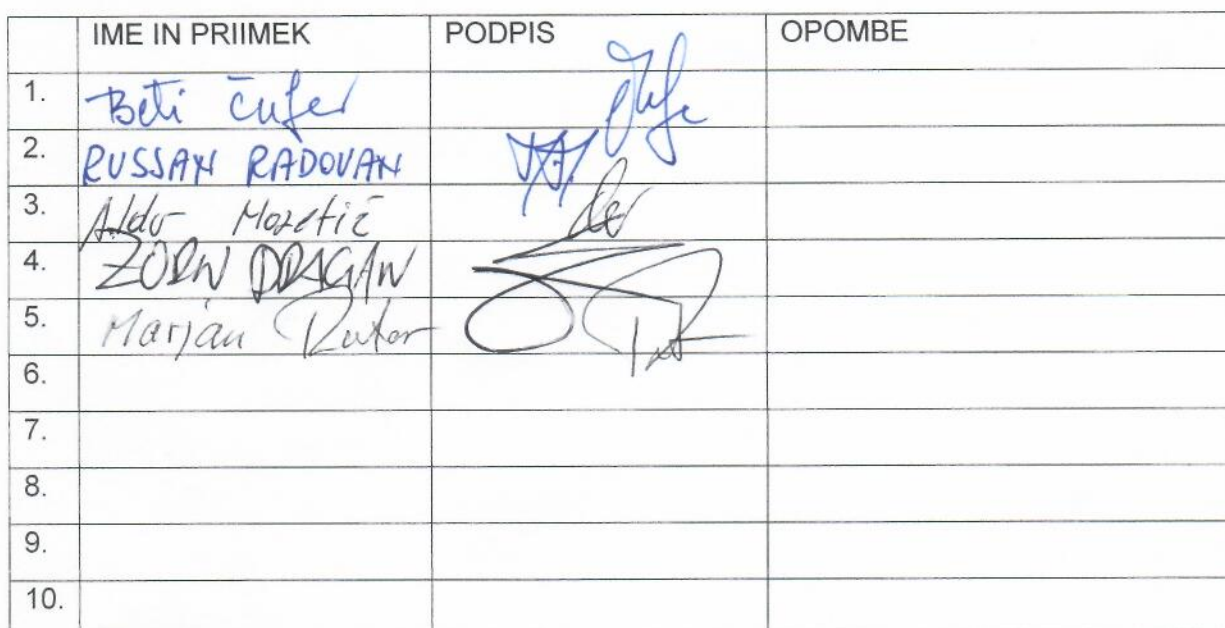 IME IN PRIIMEK PODPIS OPOMBE
1. Beti Čufer
2. RUSSAN RADOVAN
3. Aldo Mozetič
4. ZORN DRAGAN
5. Marjan
6.
7.
8.
9.
10.